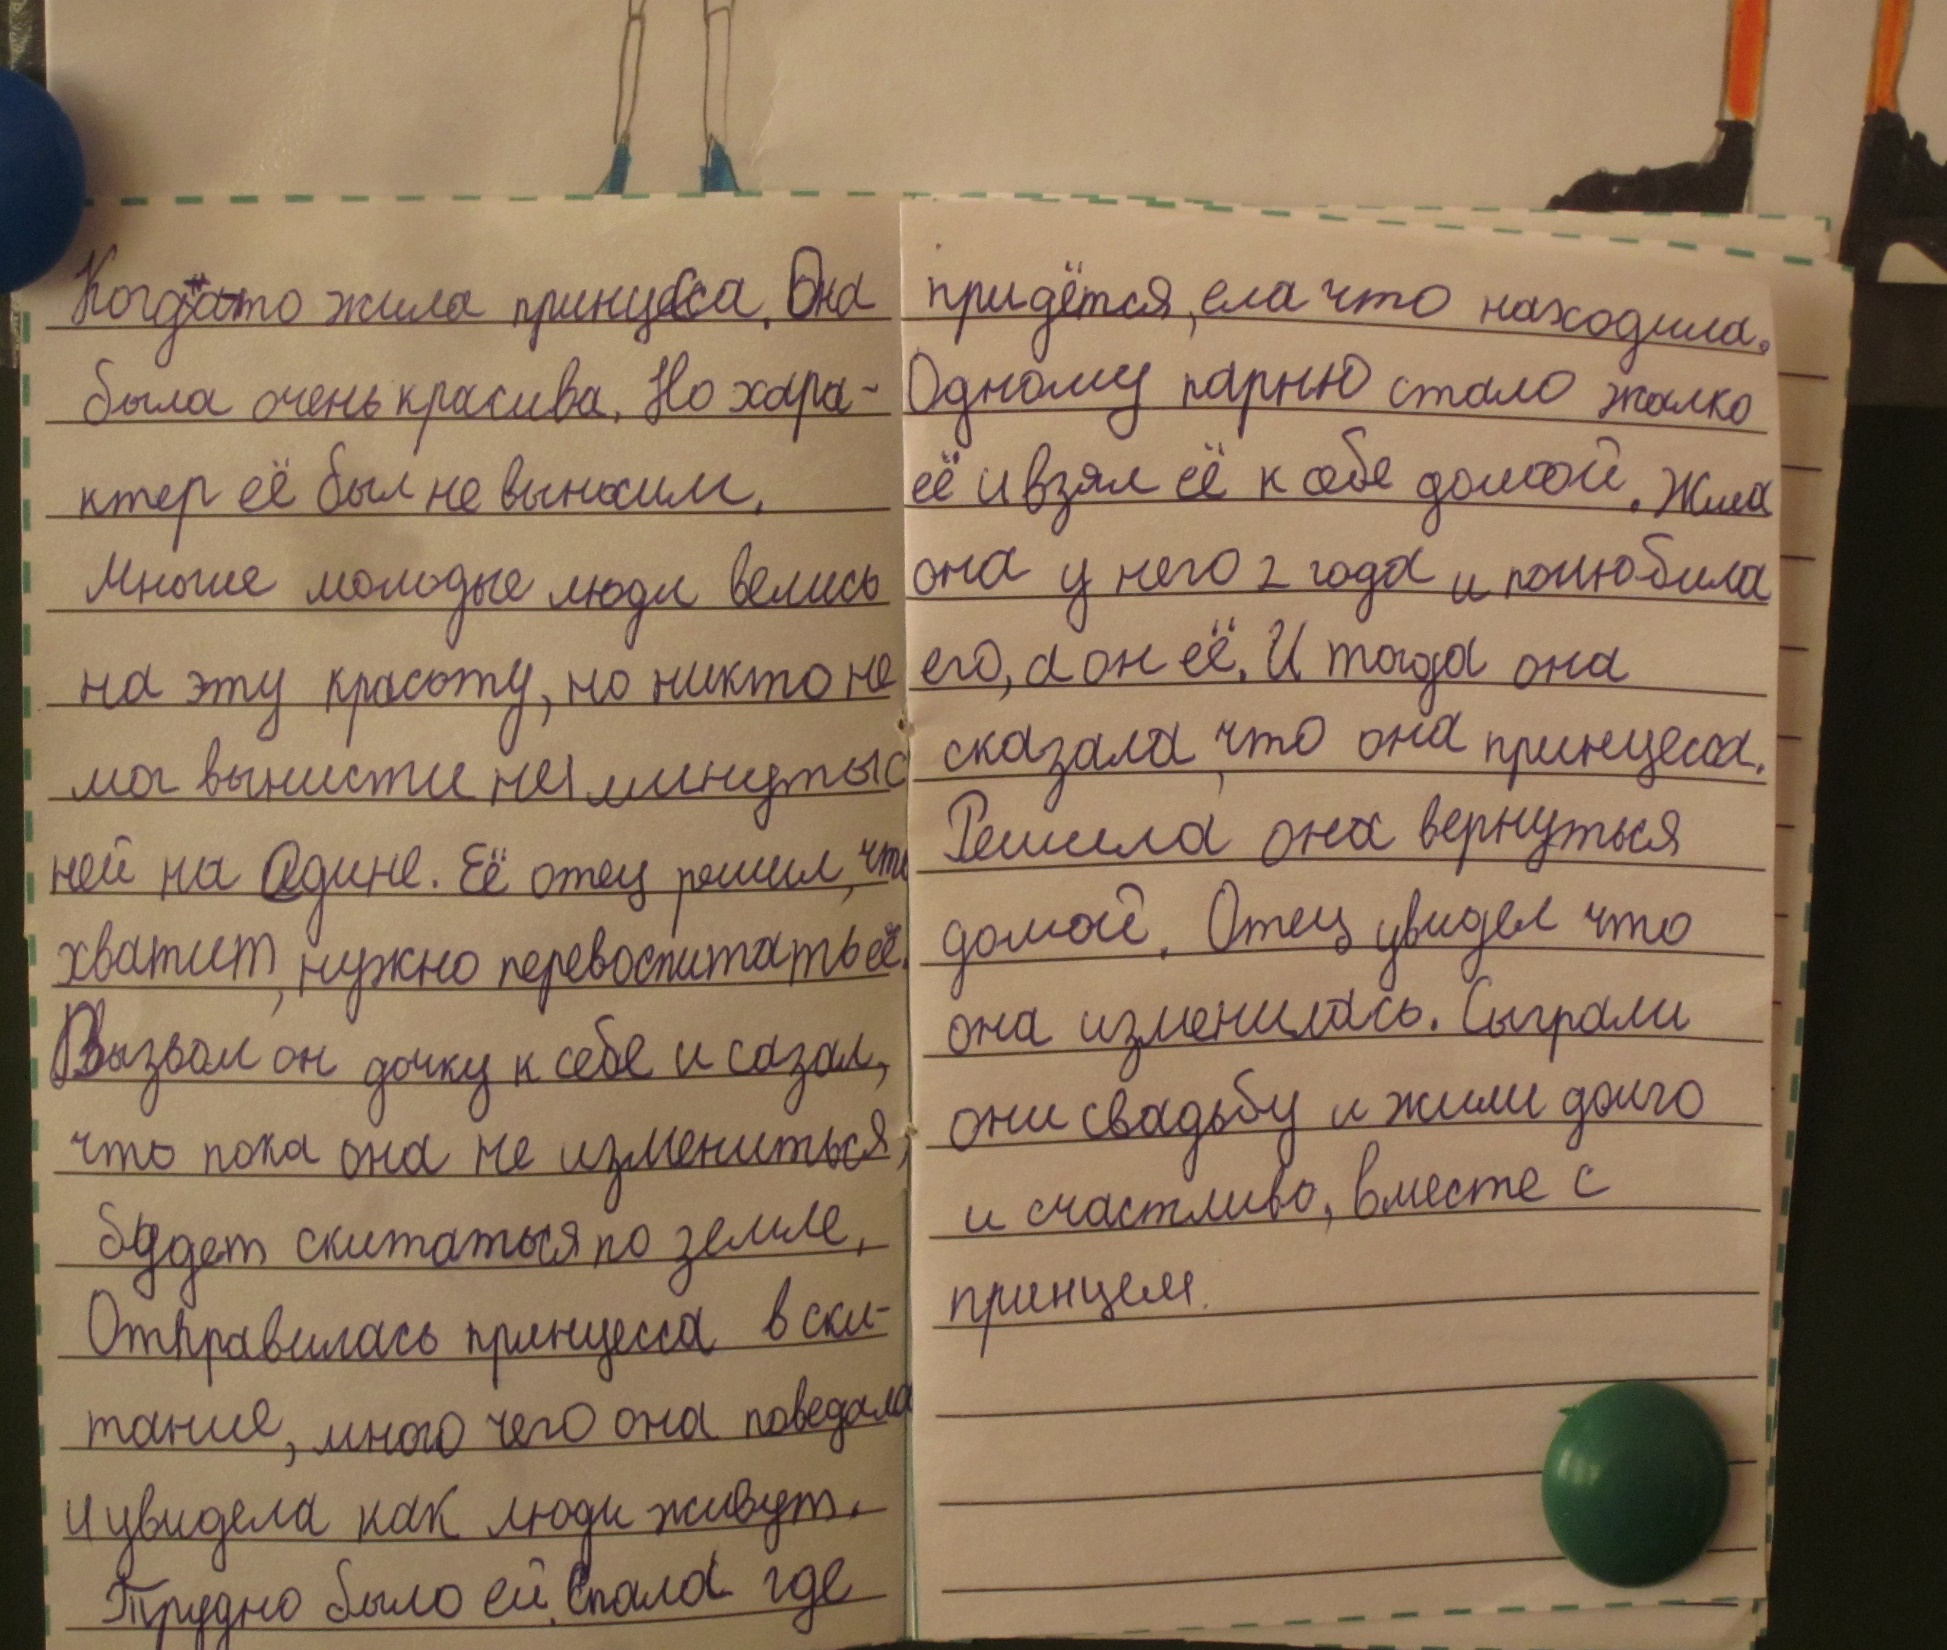 Когдато жила принцесса. Она
была очень красива. Но хара-
ктер её был не выносим.
Многие молодые люди велись
на эту красоту, но никто не
мог вынисти не 1 минуты с
ней на едине. Её отец решил, что
хватит, нужно перевоспитать её.
Вызвал он дочку к себе и сазал,
что пока она не измениться,
будет скитаться по земле.
Отправилась принцесса в ски-
тание, много чего она поведала
и увидела как люди живут.
Трудно было ей. Спала где
придётся, ела что находила.
Одному парню стало жалко
её и взял её к себе домой. Жила
она у него 2 года и полюбила
его, а он её. И тогда она
сказала, что она принцесса.
Решила она вернуться
домой. Отец увидел что
она изменилась. Сыграли
они свадьбу и жили долго
и счастливо, вместе с
принцем.